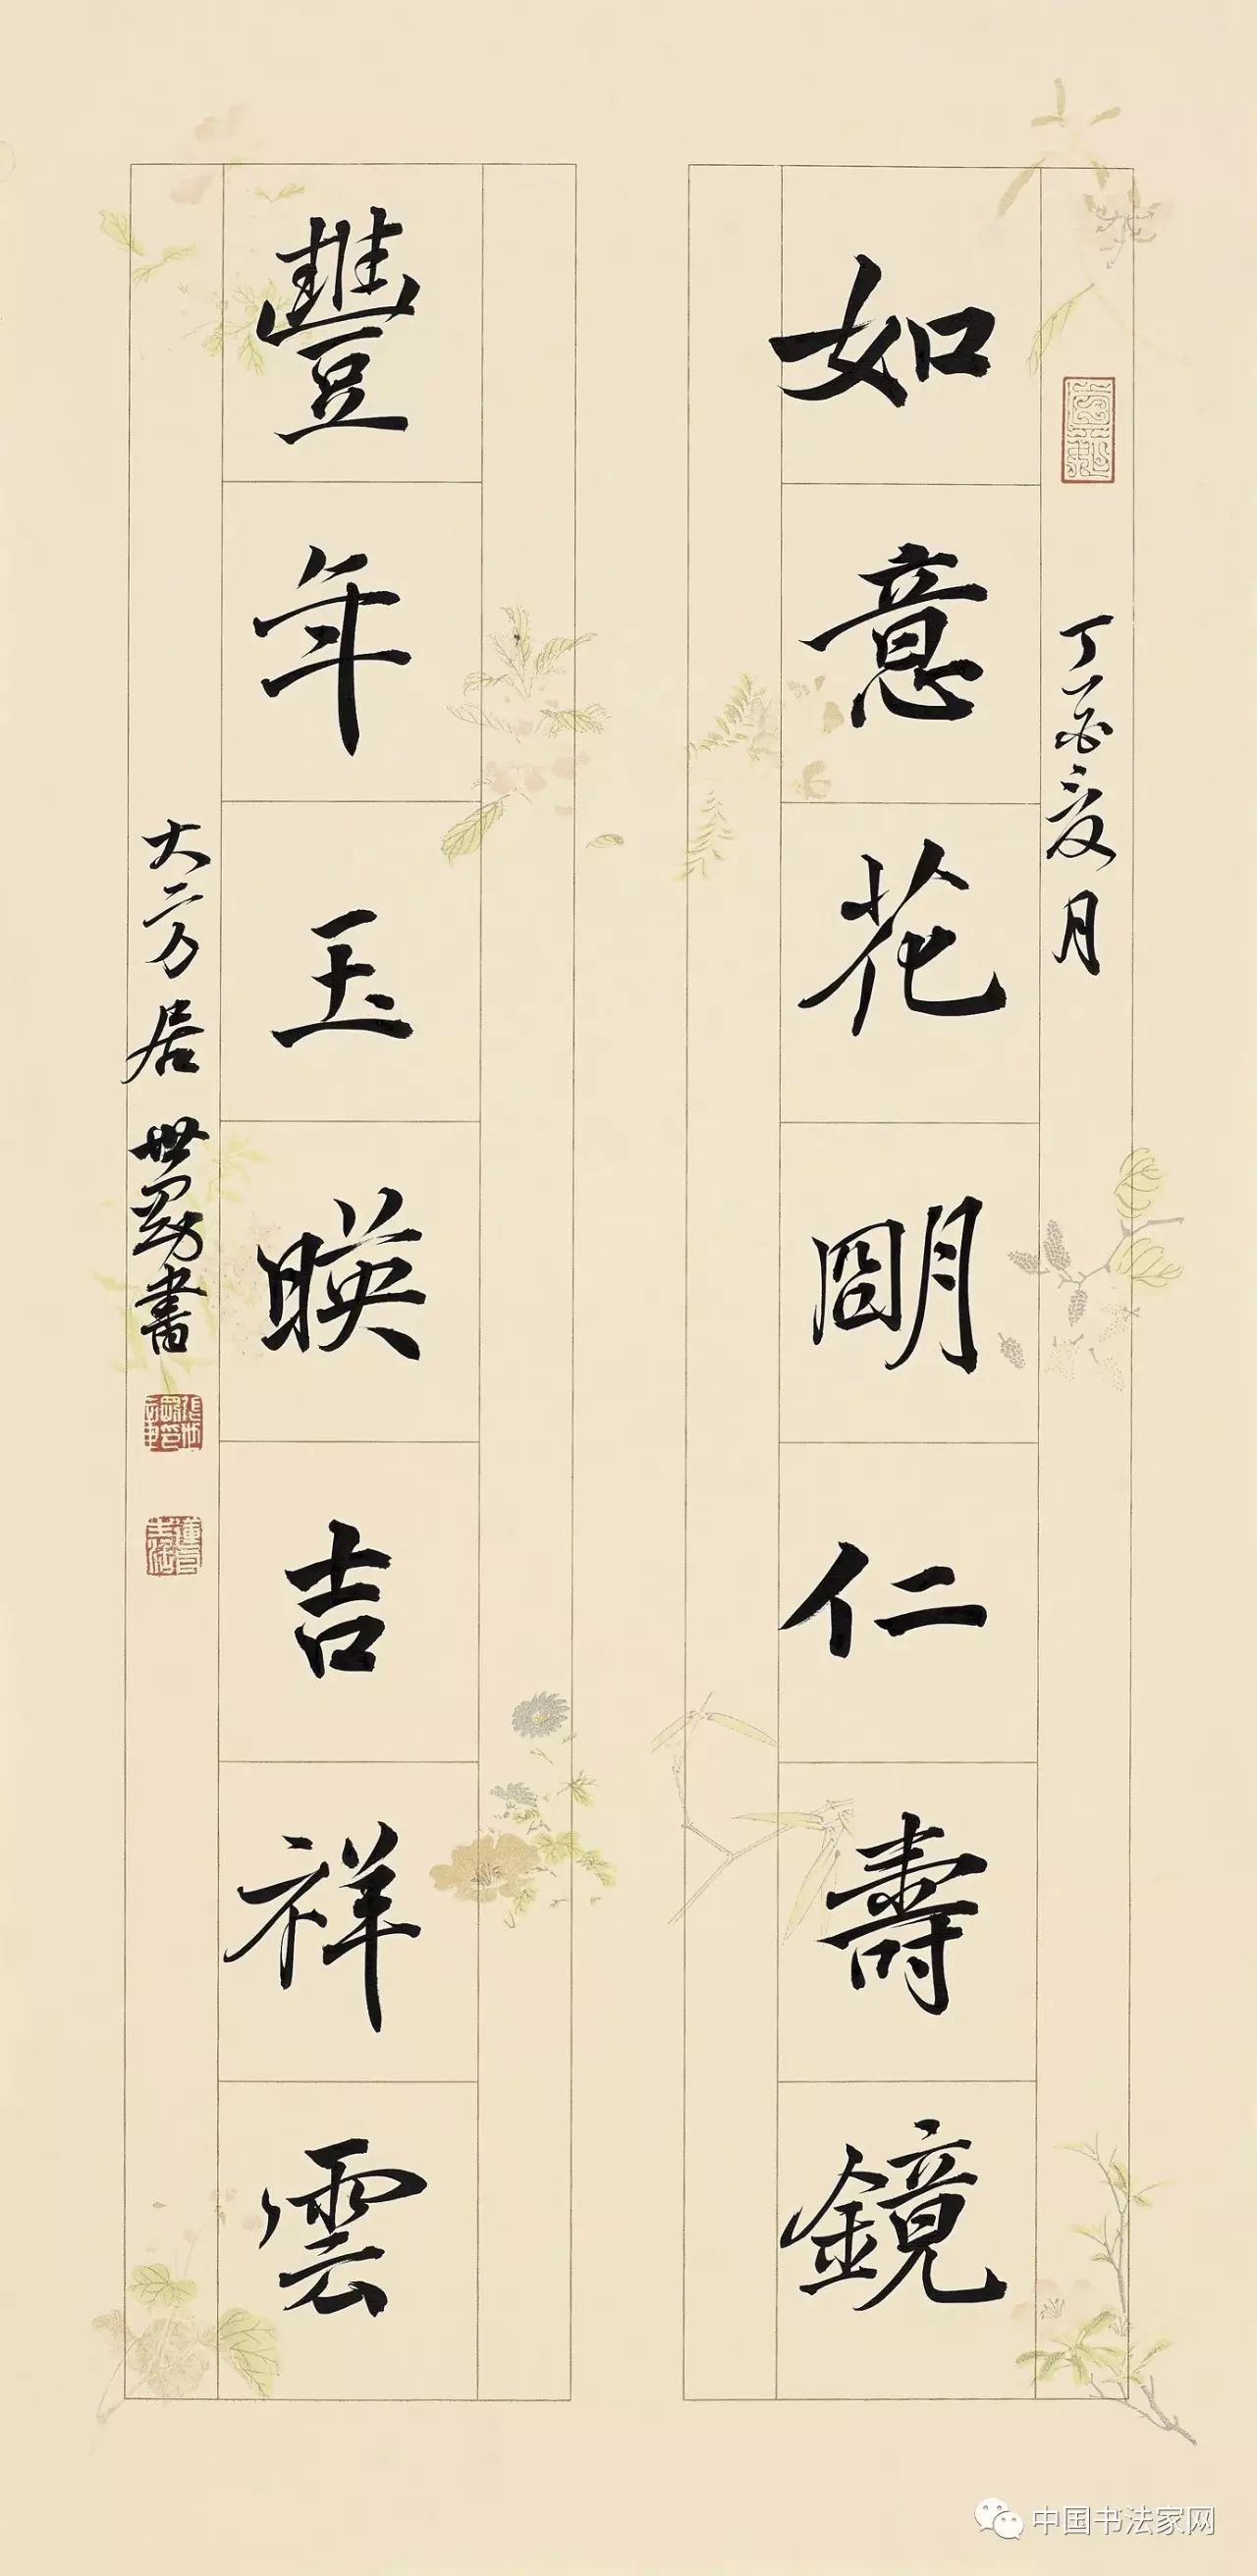 如意花朙仁壽鏡
丁酉夏月
豐年玉暎吉祥雲
大方居 世剛書
中国书法家网